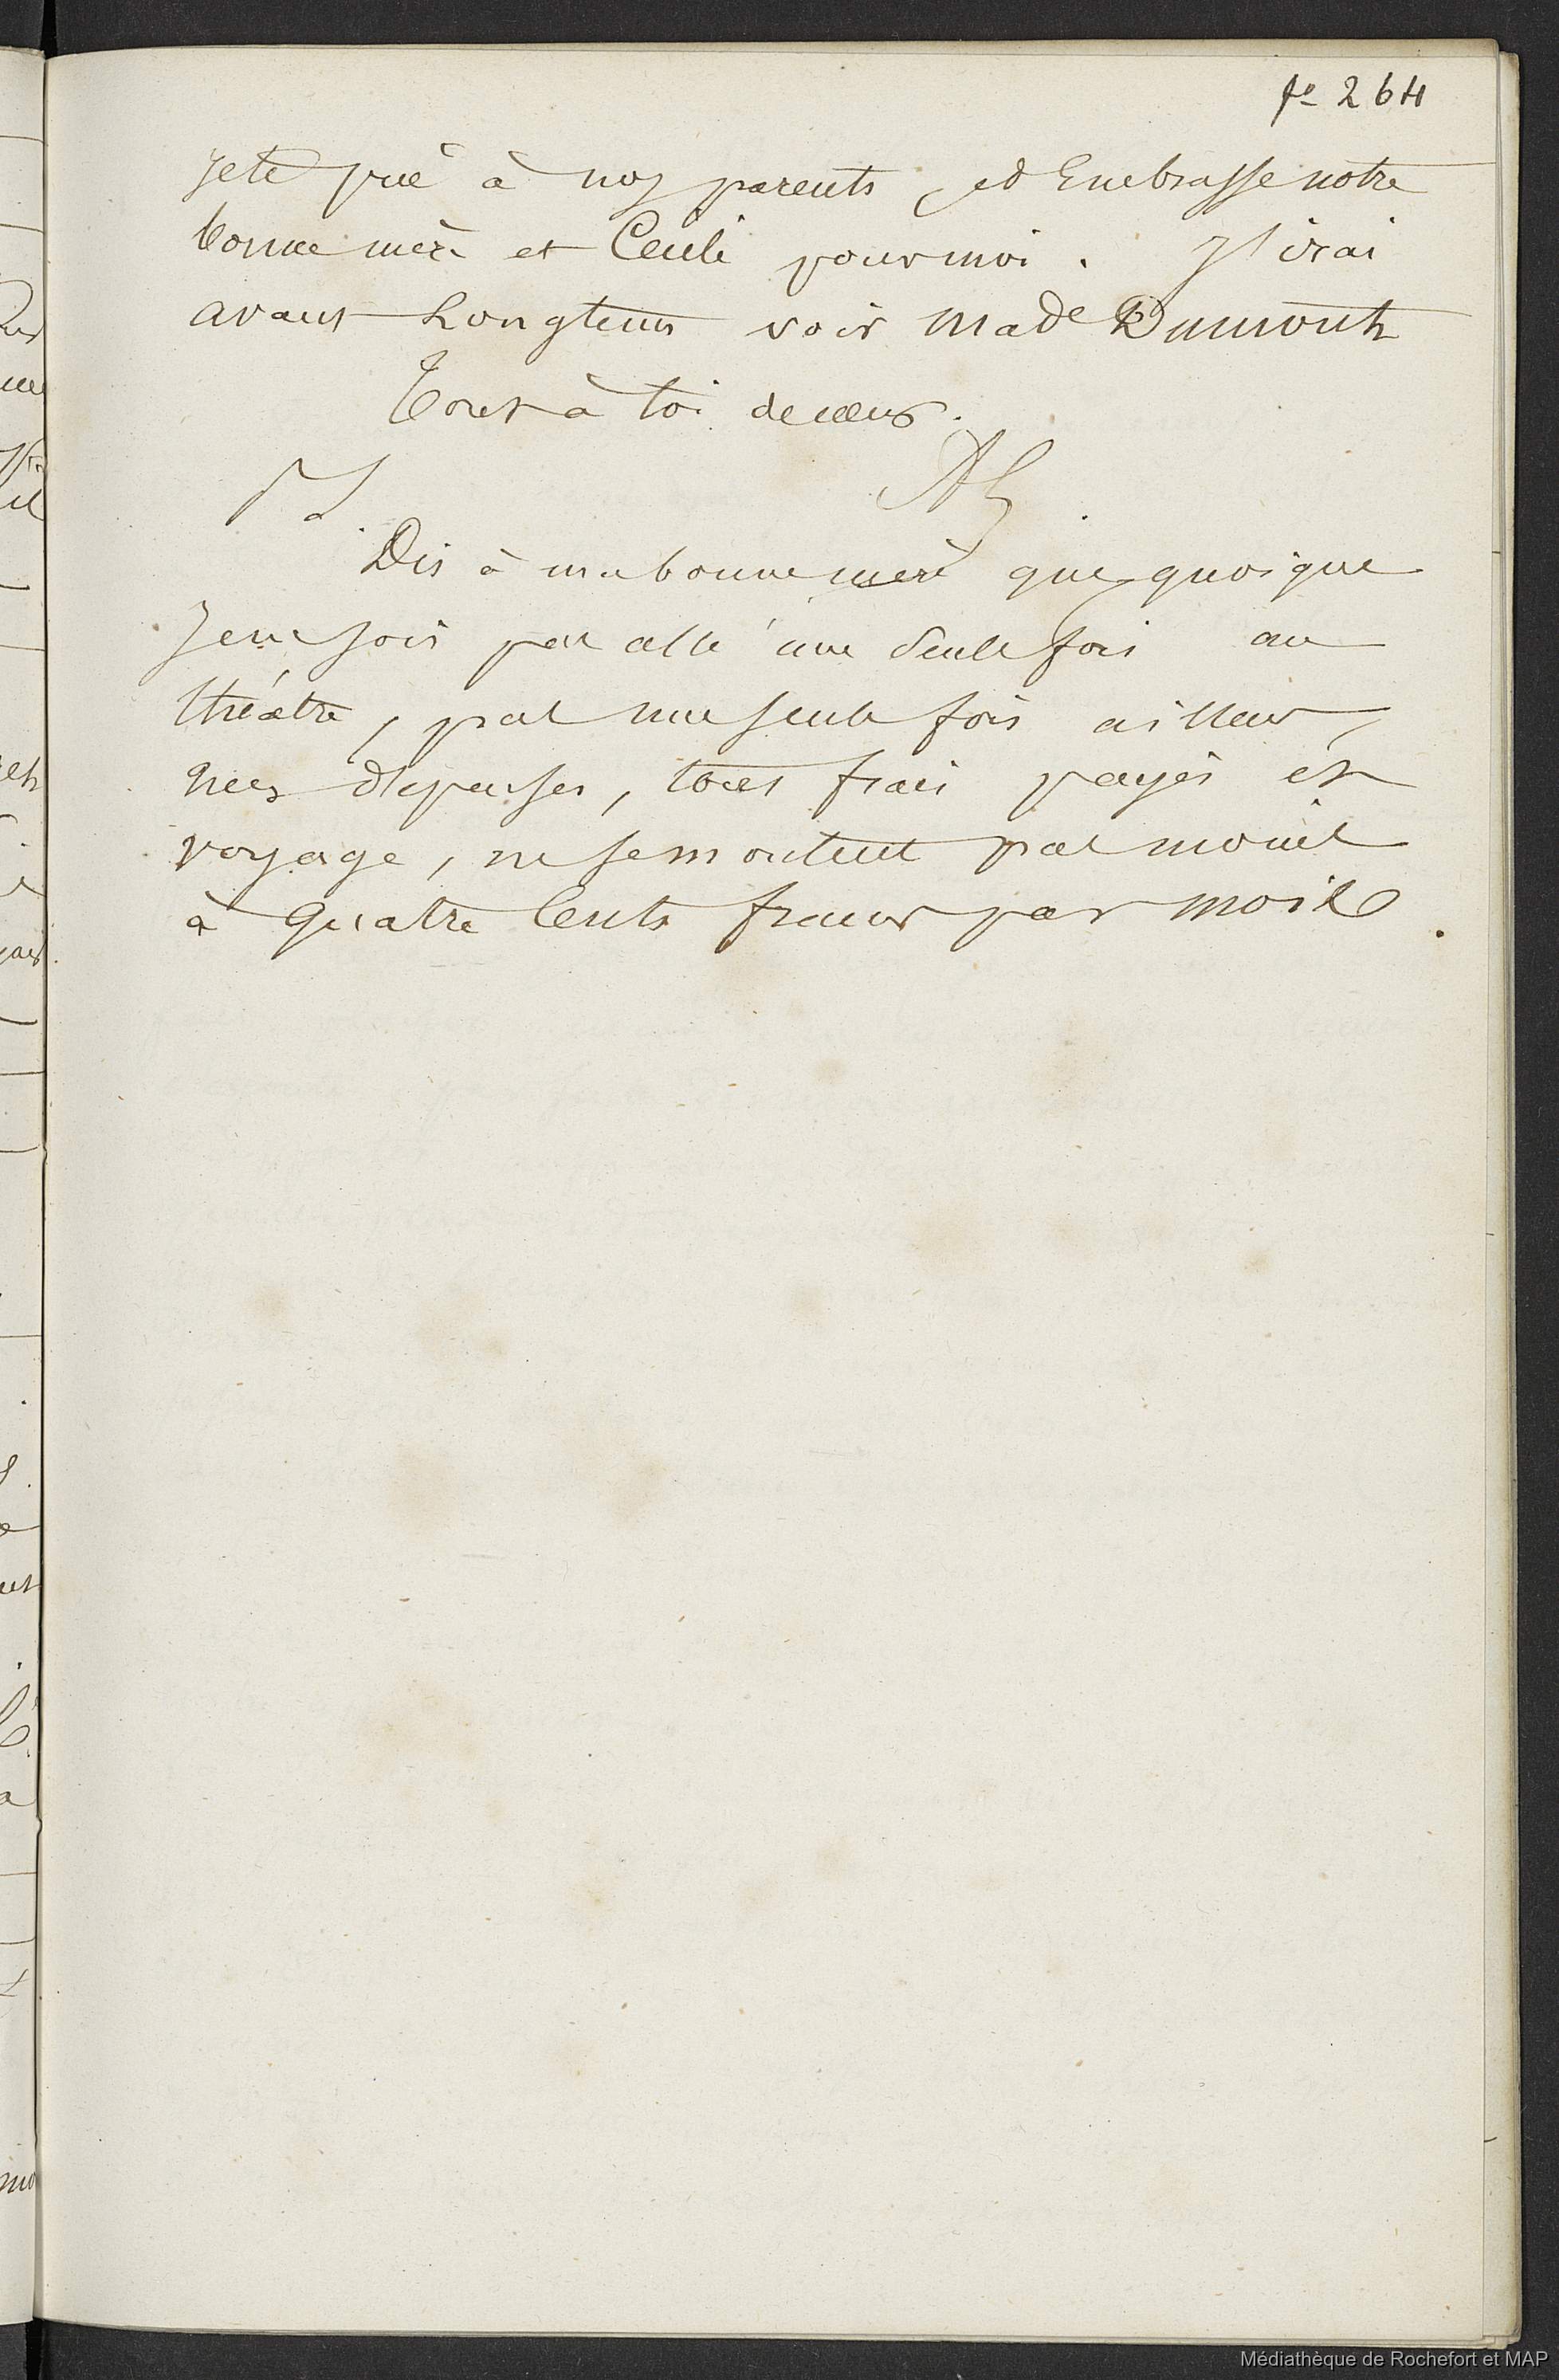 fo 264
Je te prie à nos parents, et Embrasse notre
bonne mère et Cécile pour moi. J'irai
avant Longtems voir Made Dumont
Tout à toi de cœur.
PS.
Dis à ma bonne mère que quoique
Je ne sois pas allé une Seule fois au
théâtre, pas une seule fois ailleurs,
mes dépenses, tous frais payés et
voyage, ne se montent pas moins
à Quatre Cents francs par mois.
Médiathèque de Rochefort et MAP